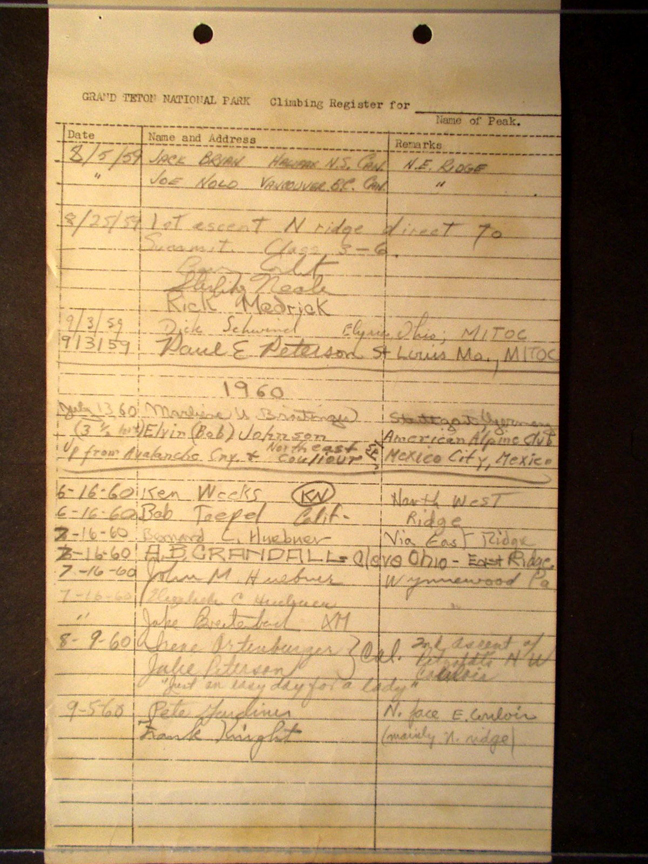 GRAND TETON NATIONAL PARK Climbing Register for
Name of Peak.
Date Name and Address Remarks
8/5/59 JACK BRIAN HALIFAX N.S. CAN. N.E. RIDGE
" JOE NOLD VANCOUVER B.C. CAN. "
8/25/59 1st ascent N ridge direct to
Summit. Class 5-6.
Sterling Neale
Rick Medrick
9/3/59 Dick Elyria Ohio; MITOC
9/3/59 Paul E Peterson St Louis Mo., MITOC
1960
July 13 60
(3 ½ hrs) Elvin (Bob) Johnson American Alpine Club
Up from Avalanche Cny. + Northeast couliour Mexico City, Mexico
6-16-60 Ken Weeks KW North West
6-16-60 Bob Toepel Calif- Ridge
7-16-60 Bernard C. Huebner Via East Ridge
7-16-60 A.B. CRANDALL - Cleve Ohio - East Ridge
7-16-60 John M Huebner Wynnewood Pa
7-16-60 Elizabeth C Huebner "
" Jake Breitenbach XM
8-9-60 Irene Ortenburger } Cal. 2nd ascent of
Julie Peterson N W
"Just an easy day for a lady"
9-5-60 Pete Gardiner N. face E. Couloir
Frank Knight (mainly N. ridge)